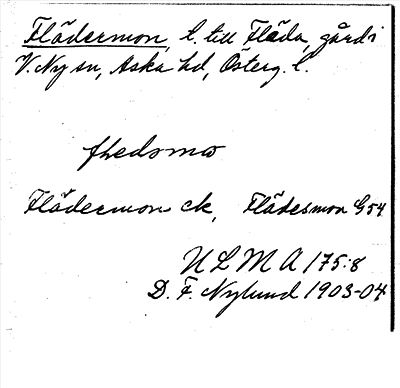 Flädermon, l. till Fläda, gård i
V. Ny sn, Aska hd, Österg. l.
fledsmo
Flädermon ek, Flädesmon G54
ULMA 175:8
D. F. Nylund 1903-04